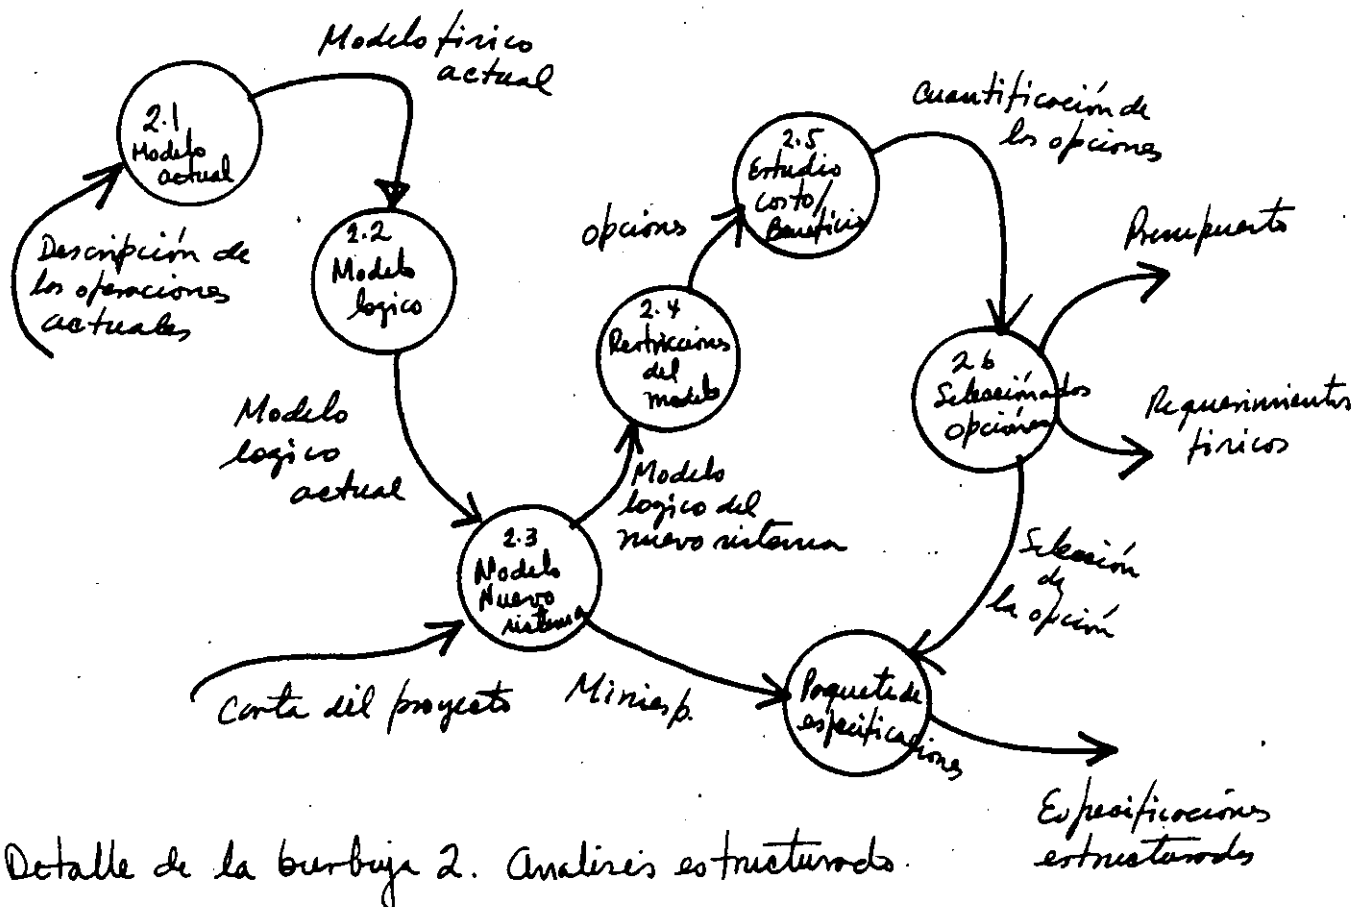 Modelo físico
actual
2.1
Modelo
actual
Descripción de
las operaciones
actuales
2.2
Modelo
logico
Modelo
logico
actual
2.3
Modelo
Nuevo
sistema
Carta del proyecto
Miniesp.
Modelo
logico del
nuevo sistema
2.4
Restricciones
del
modelo
opciones
2.5
Estudio
costo/
Beneficio
Cuantificación de
las opciones
2.6
opciones
Presupuesto
Requerimientos
físicos
Selección
de
la opción
Paquete de
especificaciones
Especificaciones
estructuradas
Detalle de la burbuja 2. Analisis estructurado.